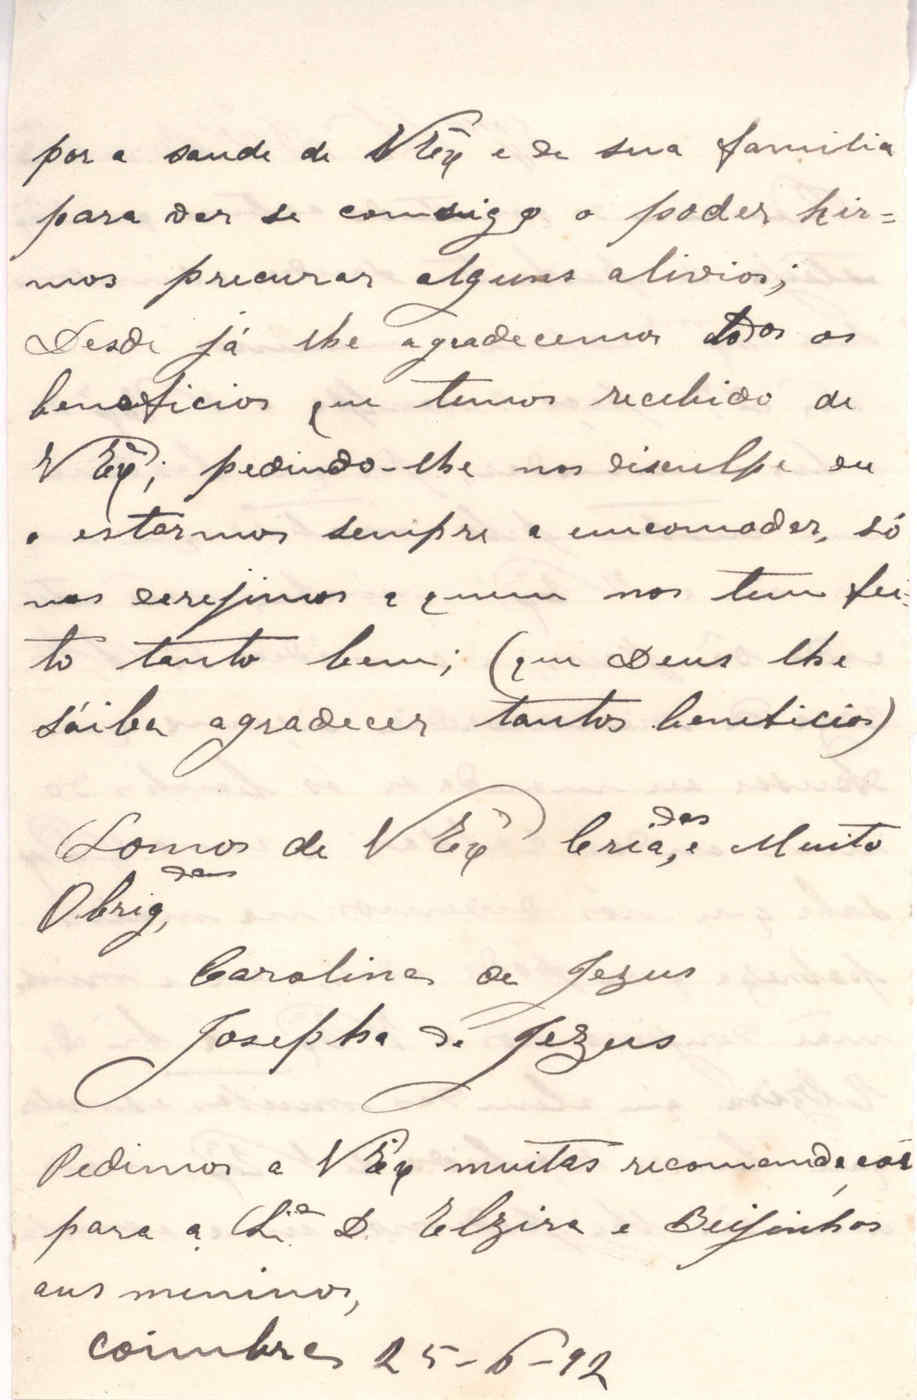 por a saude de V Exª e de sua familia
para ver se comsiggo o poder hir=
mos precurar alguns alivios;
Desde já lhe agradecemos todos os
beneficios que temos recebido de
V Exª; pedindo-lhe nos disculpe de
o estarmos sempre a emcomodar, só
nos derejimos a quem nos tem fei-
to tanto bem; (que Deus lhe
sáiba agradecer tantos beneficios)
Somos de V Exª Criadas, e Muito
Obrigdas,
Carolina de Jezus
Josepha de Jezus
Pedimos a V Exª muitas recomendações
para a D. Elzira e Beijinhos
aus meninos,
Coimbra 25-6-92